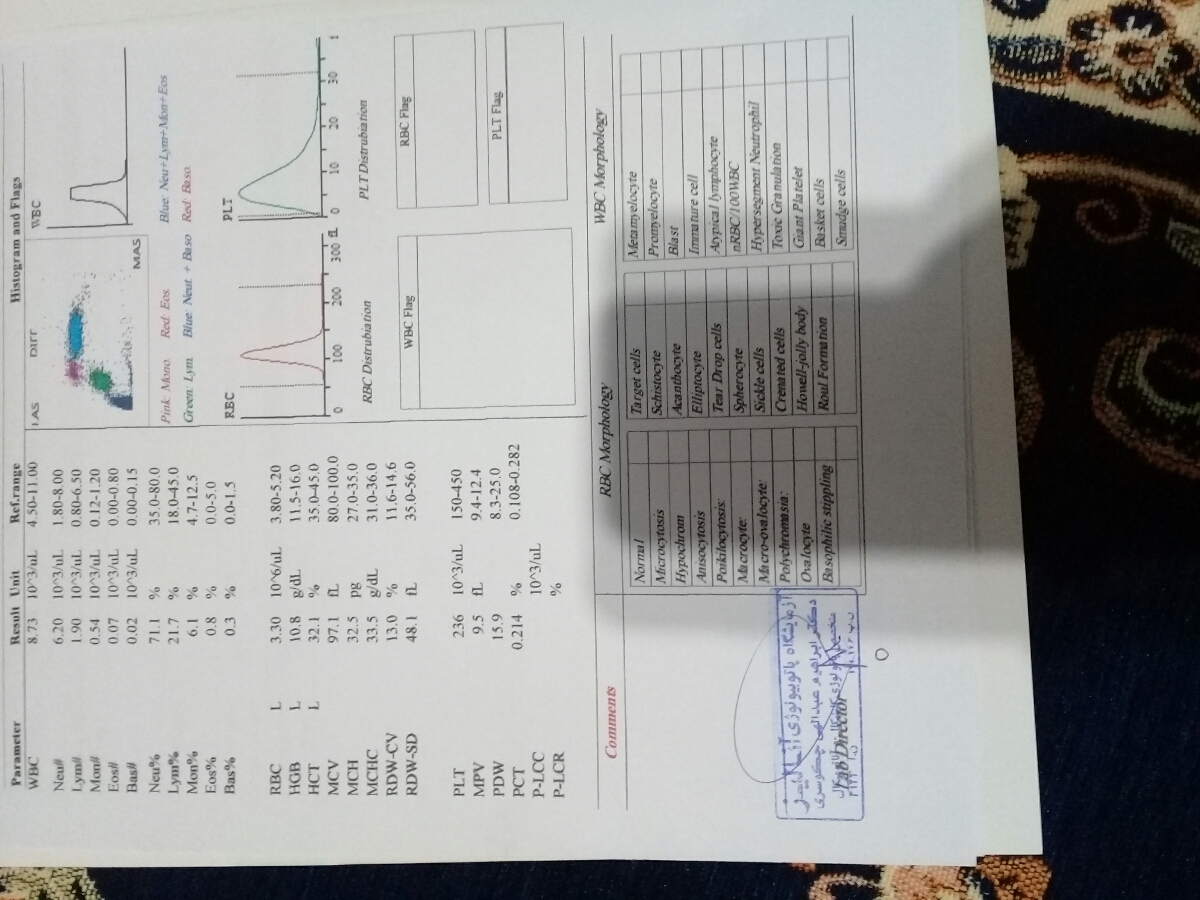 Parameter Result Unit Ref.range Histogram and Flags
WBC 8.73 10^3/uL 4.50-11.00
Neu# 6.20 10^3/uL 1.80-8.00
Lym# 1.90 10^3/uL 0.80-6.50
Mon# 0.54 10^3/uL 0.12-1.20
Eos# 0.07 10^3/uL 0.00-0.80
Bas# 0.02 10^3/uL 0.00-0.15
Neu% 71.1 % 35.0-80.0
Lym% 21.7 % 18.0-45.0
Mon% 6.1 % 4.7-12.5
Eos% 0.8 % 0.0-5.0
Bas% 0.3 % 0.0-1.5
RBC L 3.30 10^6/uL 3.80-5.20
HGB L 10.8 g/dL 11.5-16.0
HCT L 32.1 % 35.0-45.0
MCV 97.1 fL 80.0-100.0
MCH 32.5 pg 27.0-35.0
MCHC 33.5 g/dL 31.0-36.0
RDW-CV 13.0 % 11.6-14.6
RDW-SD 48.1 fL 35.0-56.0
PLT 236 10^3/uL 150-450
MPV 9.5 fL 9.4-12.4
PDW 15.9 8.3-25.0
PCT 0.214 % 0.108-0.282
P-LCC 10^3/uL
P-LCR %
LAS DIFF WBC
MAS
Pink: Mono. Red: Eos. Blue: Neu+Lym+Mon+Eos
Green: Lym Blue: Neut. + Baso Red: Baso.
RBC PLT
0 100 200 300 fL 0 10 20 30
RBC Distrubiation PLT Distrubiation
WBC Flag RBC Flag
PLT Flag
Comments
RBC Morphology WBC Morphology
Normal Target cells Metamyelocyte
Microcytosis Schistocyte Promyelocyte
Hypochrom Acanthocyte Blast
Anisocytosis Elliptocyte Immature cell
Poikilocytosis: Tear Drop cells Atypical lymphocyte
Macrocyte: Spherocyte nRBC/100WBC
Macro-ovalocyte: Sickle cells Hypersegment Neutrophil
Polychromasia: Crenated cells Toxic Granulation
Ovalocyte Howell-jolly body Giant Platelet
Basophilic stippling Roul Formation Basket cells
Smudge cells
آزمایشگاه پاتوبیولوژی
دکتر ابراهیم عبدالهی
Lab Director